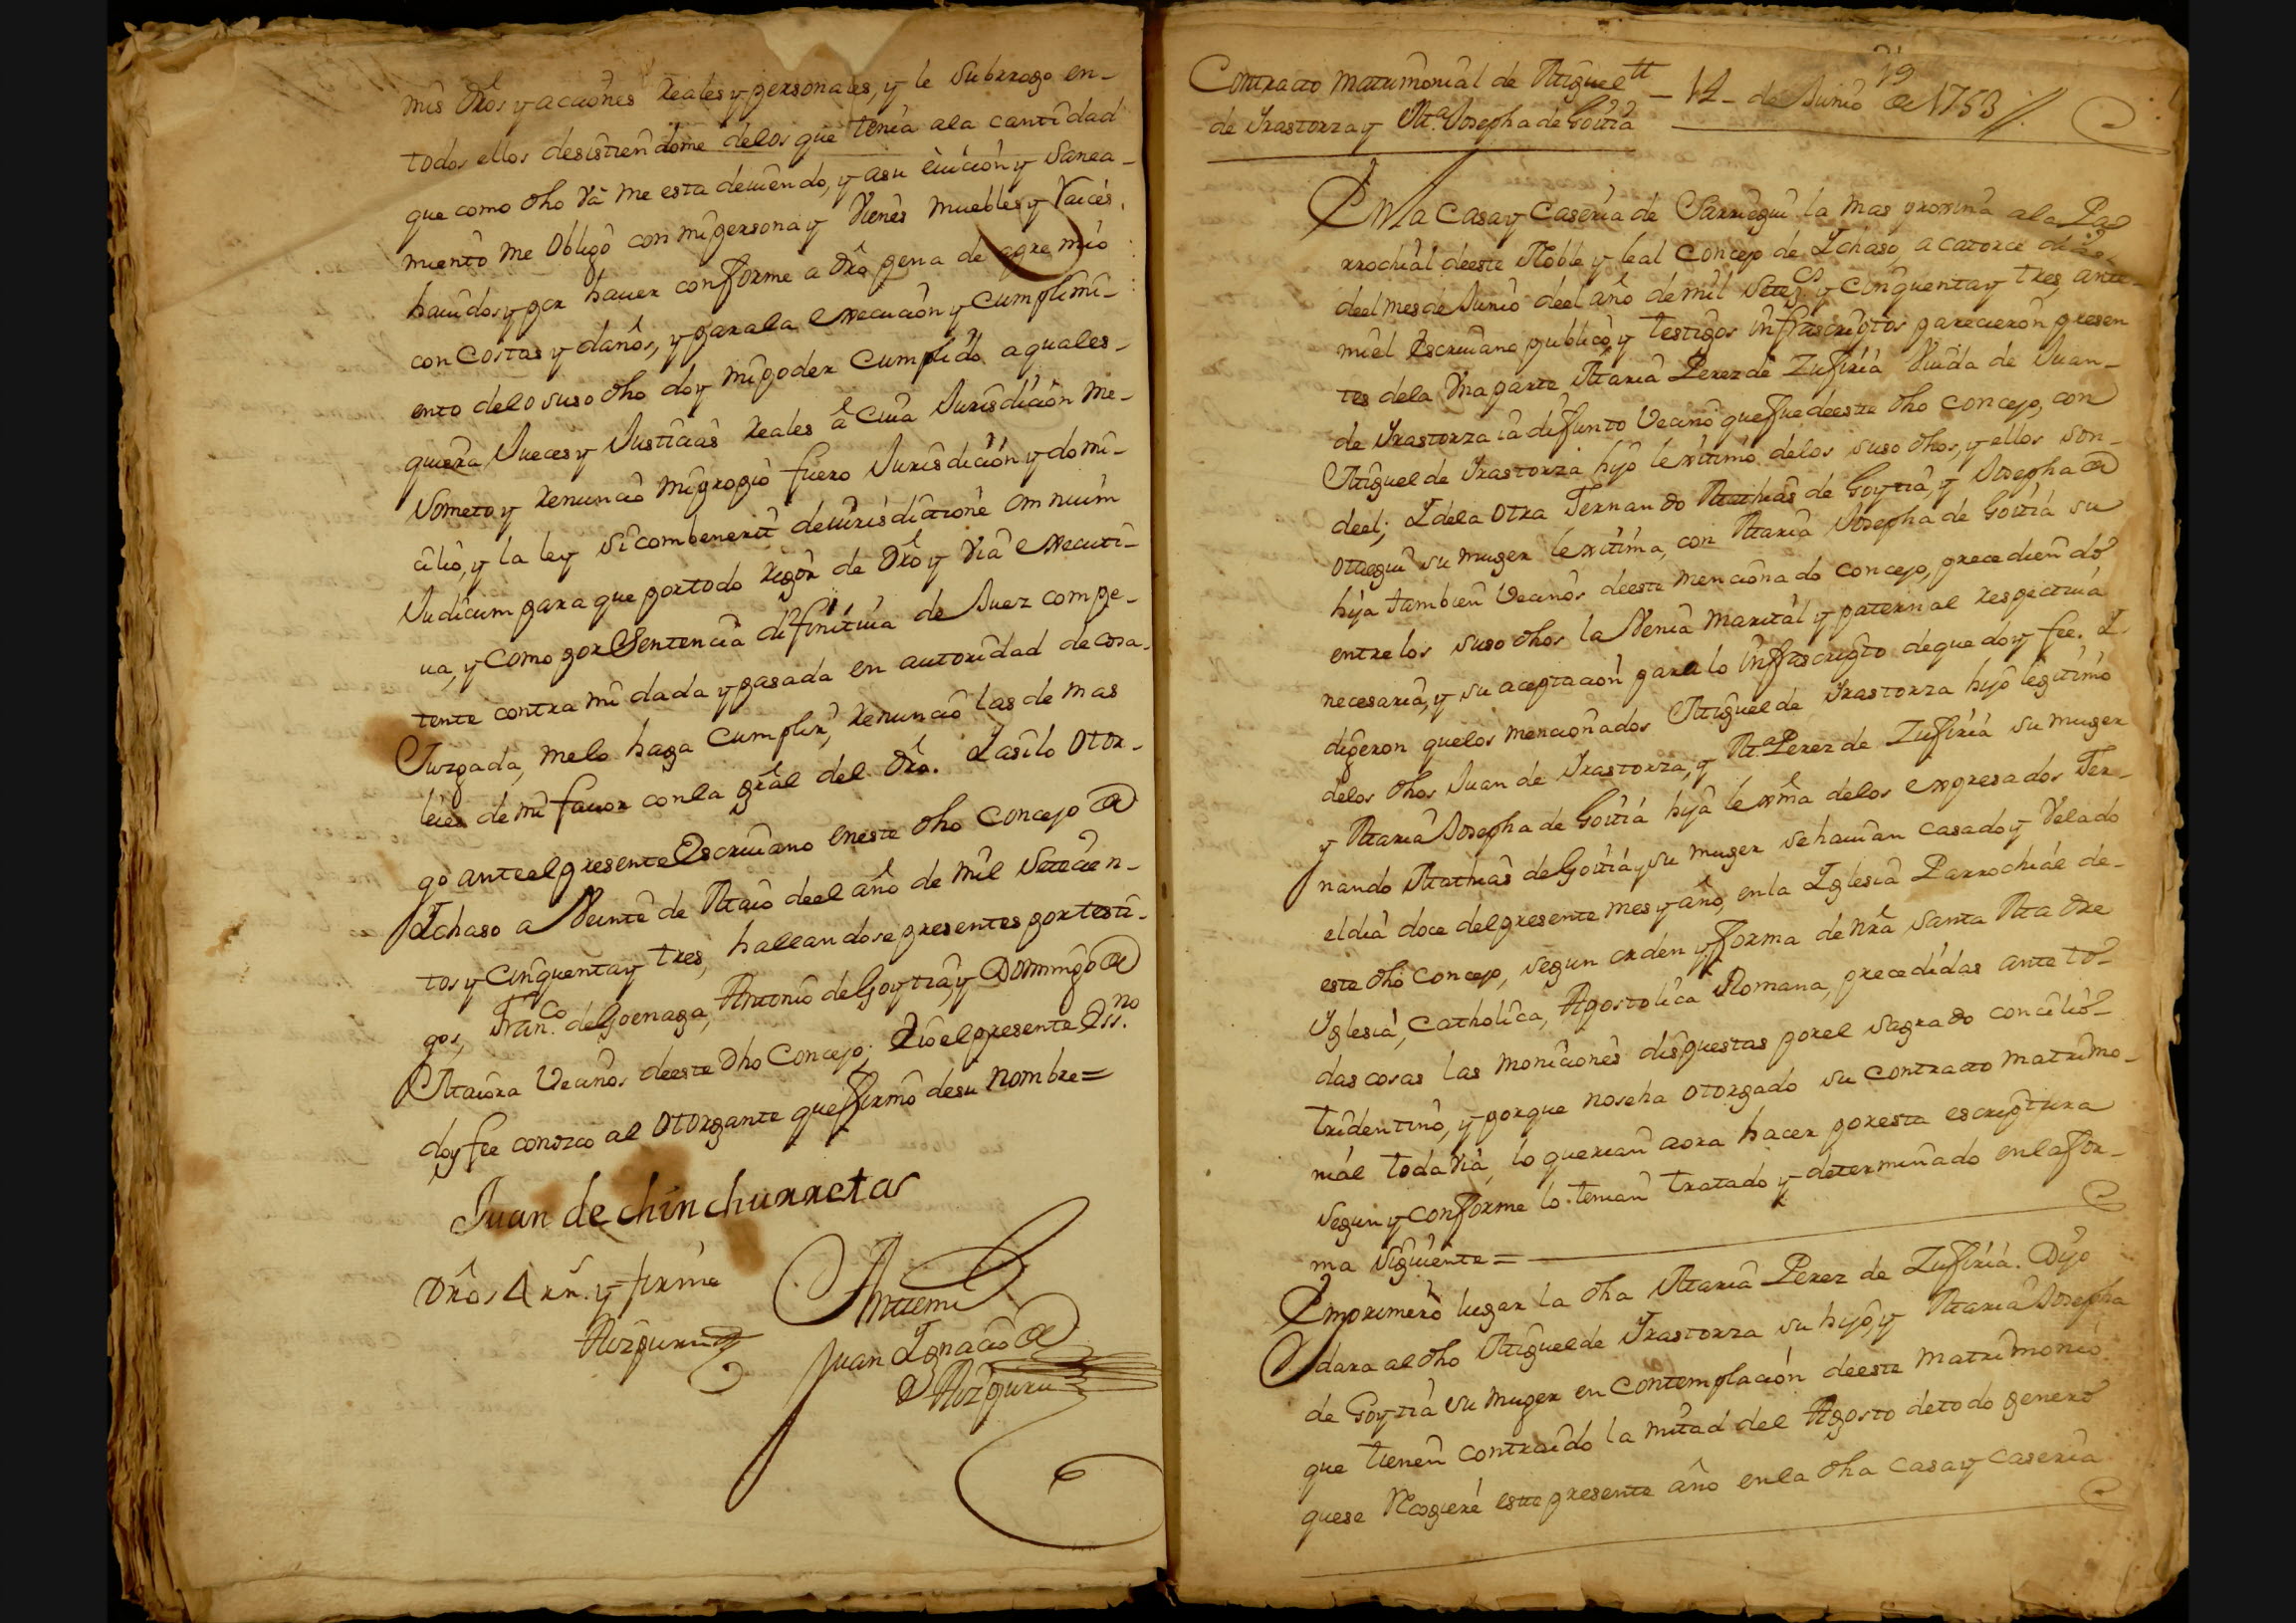 mis dr̃os y acciones reales y personales, y le subrrogo en-
todos ellos desistiendome delos que tenia ala cantidad
que como dho va me esta deviendo, y asu evicion y sanea-
miento me obligo con mi persona y vienes muebles y raices,
havidos y por haver conforme a dr̃o pena de apremio
con costas y daños, y para la execucion y cumplimi-
ento delo suso dho doy mi poder cumplido a quales-
quiera Jueces y Justicias reales â cuia Jurisdicion me-
someto y renuncio mi propio fuero Jurisdicion y domi-
cilio, y la ley si combenerit de iurisdictione omnium
Judicum para que por todo rigor de dr̃o y via executi-
va, y como por Sentencia difinitiva de Juez compe-
tente contra mi dada y pasada en autoridad de cosa
Juzgada, melo haga cumplir, renuncio las de mas
leies de mi favor con la gr̃al del dr̃o. Y asi lo otor-
go ante el presente Escrivano en este dho concejo de
Ychaso a veinte de Maio de el año de mil setecien-
tos y cinquenta y tres, hallandose presentes por testi-
gos, Fran.co de Goenaga, Antonio de Goytia, y Domingo de
Maiora vecinos de este dho Concejo; E io el presente Ess.no
doy fee conozco al otorgante que firmo de su nombre=
Juan de chinchurreta
Dr̃os 4 rr̃. y firme
Aizpuru
Antemi
Juan Ygnacio de
Aizpuru
19
Contracto matrimonial de Miguel
de Yrastorza y M.a Josepha de Goitia
- 14 - de Junio de 1753 //.
En la casa y caseria de Sarriegui la mas proxima a la Pa-
rrochial de este Noble y leal Concejo de Ychaso, a catorce de
deel mes de Junio deel año de mil setec.s y cinquenta y tres, ante-
mi el Escrivano publico, y testigos infrascriptos parecieron presen
tes dela una parte Maria Perez de Zufiria viuda de Juan-
de Yrastorza ia difunto vecino que fue de este dho concejo, con
Miguel de Yrastorza hijo lexitimo delos suso dhos, y ellos son-
deel; Y dela otra Fernando Mathias de Goytia, y Josepha de
Otaegui su muger lexitima, con Maria Josepha de Goitia su
hija tambien vecinos de este mencionado concejo, precediendo
entre los suso dhos la venia marital y paternal respectiva
necesaria, y su aceptacion para lo infrascripto de que doy fee. Y
digeron que los mencionados Miguel de Yrastorza hijo legitimo
delos dhos Juan de Yrastorza, y M.a Perez de Zufiria su muger
y Maria Josepha de Goitia hija lexm̃a delos expresados Fer-
nando Mathias de Goitia y su muger se havian casado y velado
el dia doce del presente mes y año, en la Yglesia Parrochial de-
este dho concejo, segun orden y forma de nr̃a Santa Madre
Yglesia, Catholica, Apostolica Romana, precedidas ante to-
das cosas las moniciones dispuestas por el sagrado concilio-
tridentino, y porque no se ha otorgado su contracto matrimo-
nial todavia, lo querian aora hacer por esta escriptura
segun y conforme lo tenian tratado y determinado en la for-
ma siguiente =
En primero lugar la dha Maria Perez de Zufiria. Dijo
dara al dho Miguel de Yrastorza su hijo, y Maria Josepha
de Goytia su muger en contemplacion de este matrimonio
que tienen contraido la mitad del Agosto de todo genero
que se recogiere este presente año en la dha casa y caseria